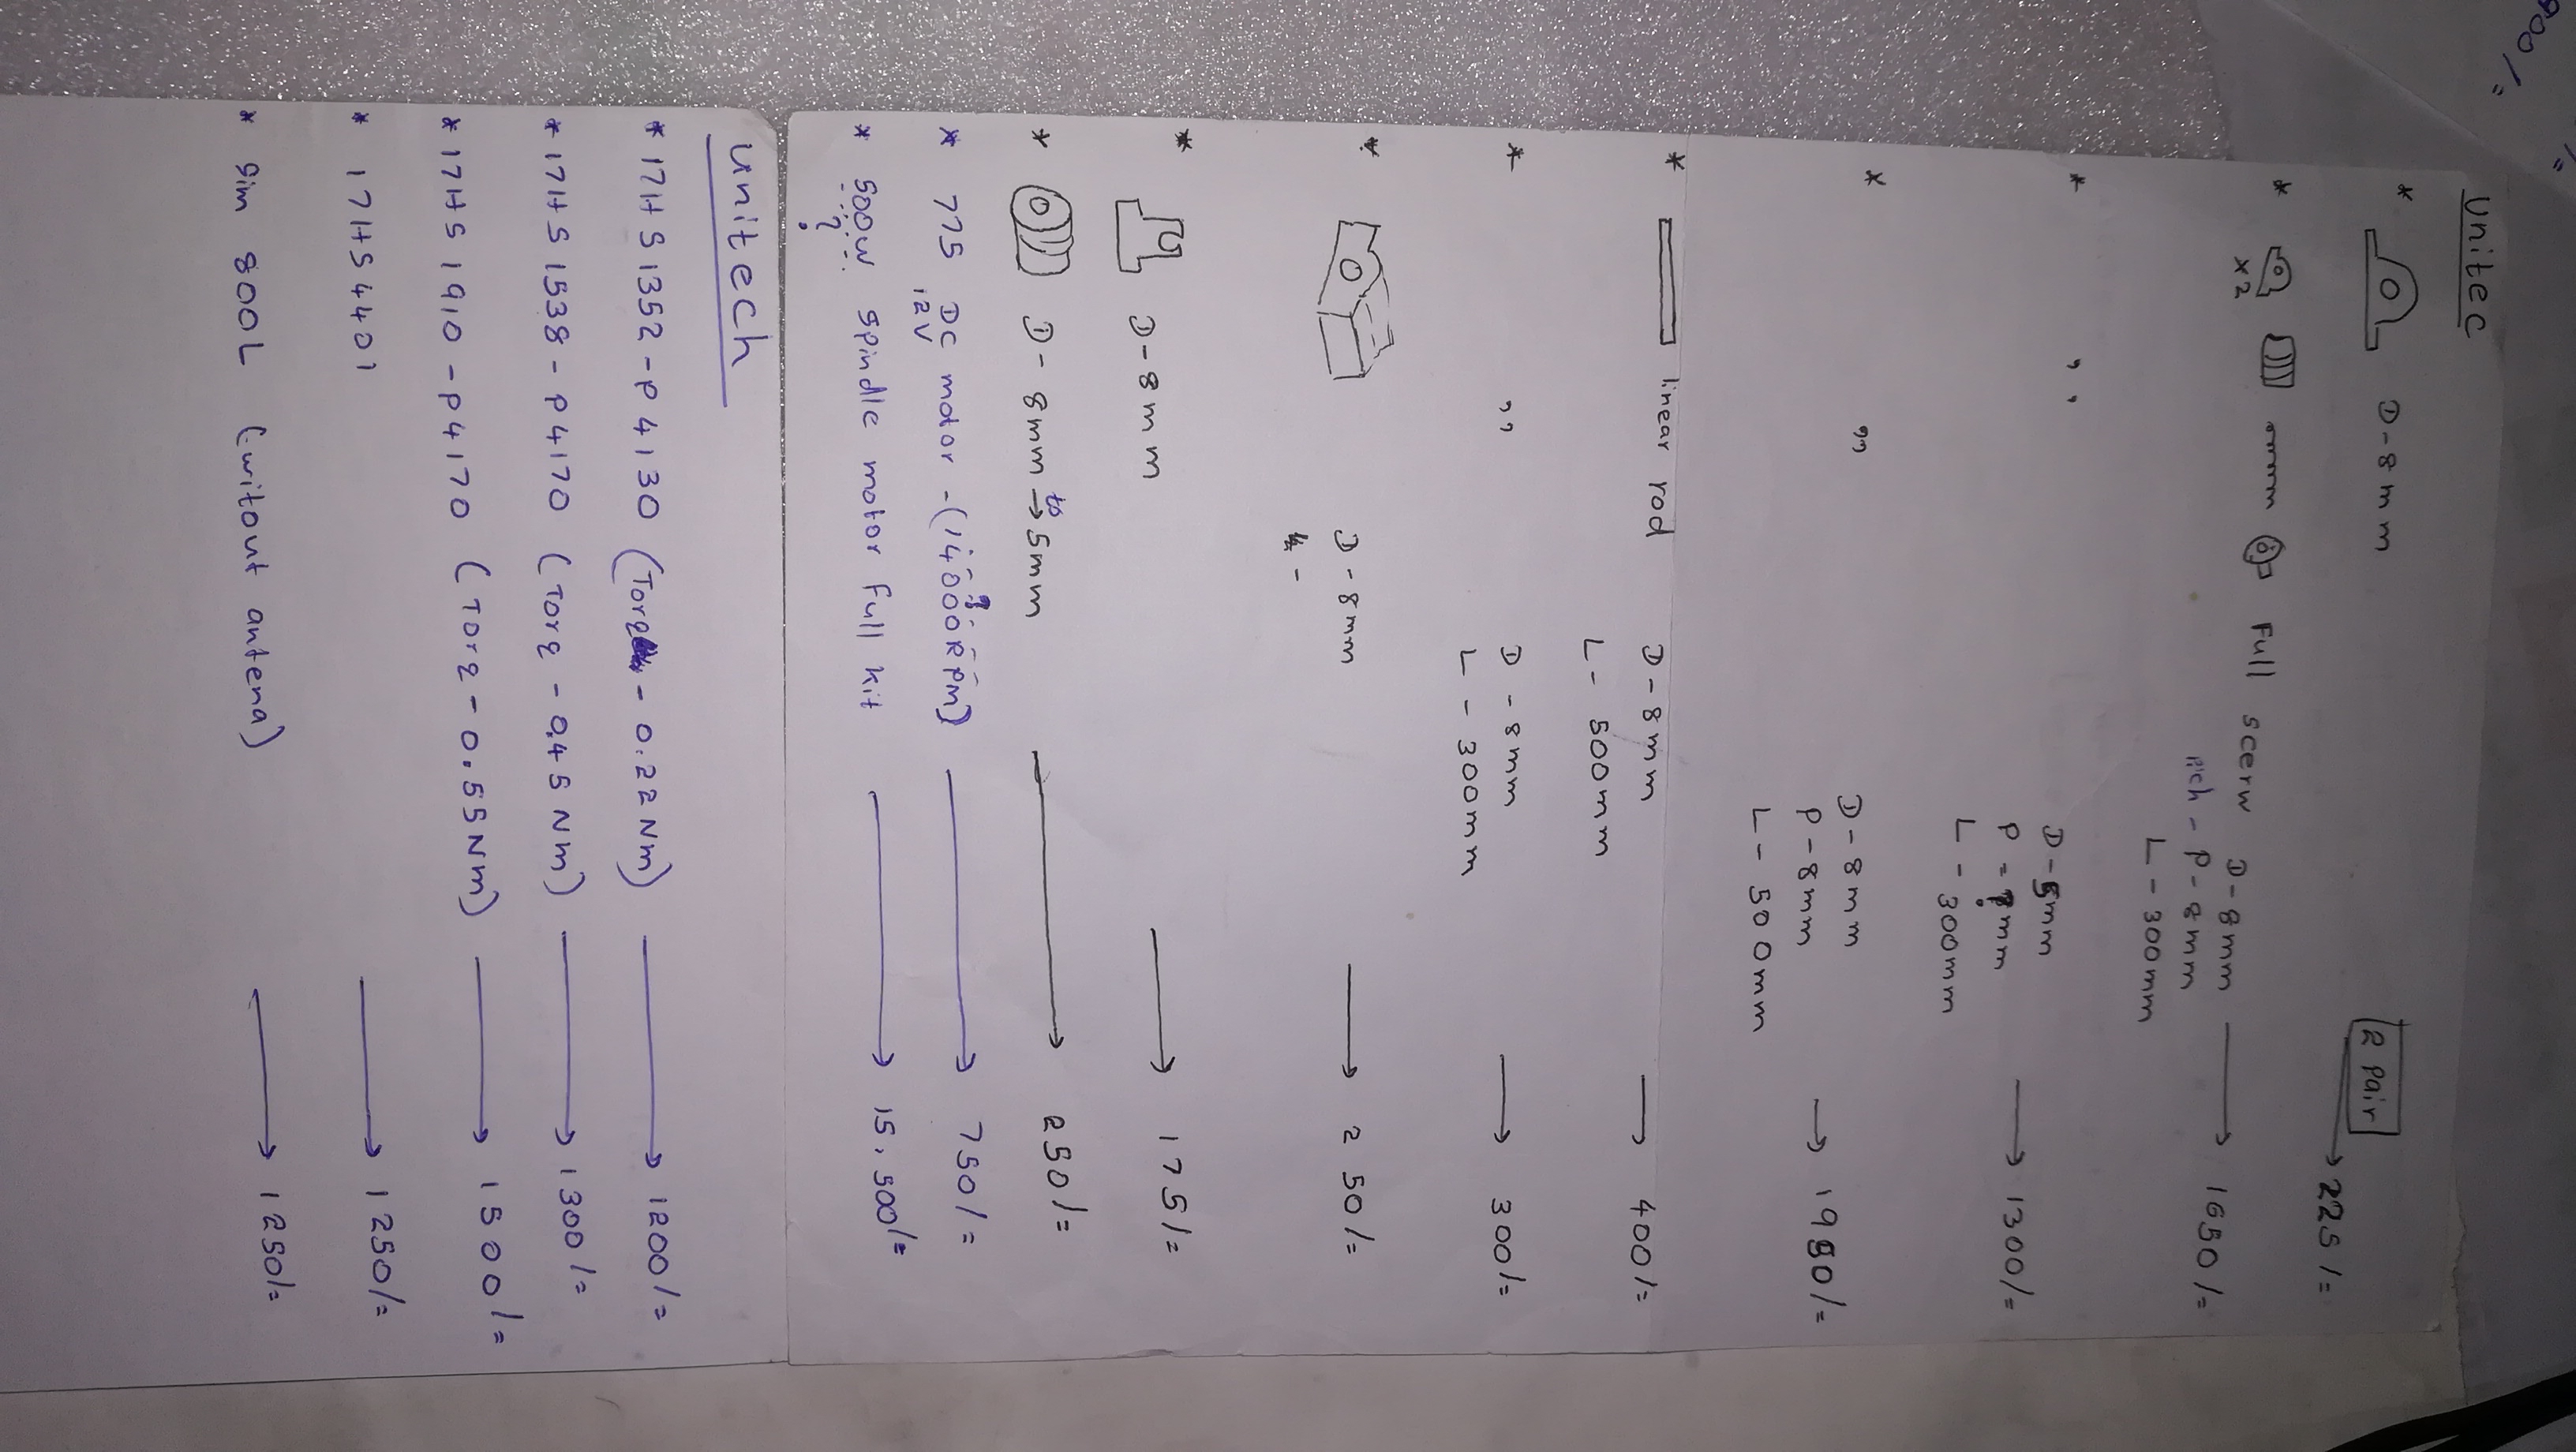 900/=
/=
Unitec
* D-8mm 2 pair → 225/=
* x2 Full scerw D-8mm → 1650/=
Pich - P-8mm
L-300mm
* ,, D-5mm → 1300/=
P = mm
L-300mm
* ,, D-8mm → 1980/=
P-8mm
L-500mm
* linear rod D-8mm → 400/=
L-500mm
* ,, D-8mm → 300/=
L-300mm
* D-8mm → 250/=
* D-8mm → 175/=
* D-8mm to → 5mm → 250/=
* 775 DC motor -(14000RPM) → 750/=
12V ?
* 500w spindle motor full kit → 15,500/=
?
Unitech
* 17HS1352-P4130 (Torq - 0.22Nm) → 1200/=
* 17HS1538-P4170 (Torq - 0.45Nm) → 1300/=
* 17HS1910-P4170 (Torq - 0.55Nm) → 1500/=
* 17HS4401 → 1250/=
* Sim 800L (witout antena) → 1250/=